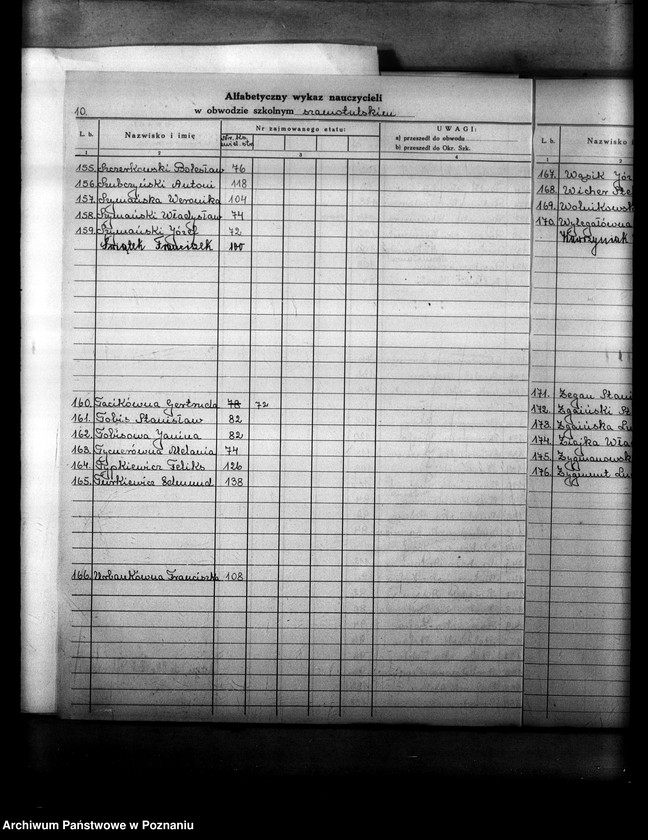 Alfabetyczny wykaz nauczycieli
10.
w obwodzie szkolnym szamotulskim
L. b.
Nazwisko i imię
Nr zajmowanego etatu:
UWAGI:
a) przeszedł do obwodu
b) przeszedł do Okr. Szk.
1 2 3 4
155. Szczerkowski Bolesław 76
156. Szubczyński Antoni 118
157. Szymańska Weronika 104
158. Szymański Władysław 74
159. Szymański Józef 72
Świątek Franciszek 100
160. Tacikówna Gertruda 78 72
161. Tobis Stanisław 82
162. Tobisowa Janina 82
163. Tycnerówna Melania 74
164. Typkiewicz Feliks 126
165. Turkiewicz Edmund 138
166. Urbankówna Franciszka 108
L. b.
Nazwisko i
1 2
167. Wąsik Józ
168. Wicher Stef
169. Wolnikowsk
170. Wylegałówna
Wawrzyniak
171. Zegan Stani
172. Zgaiński St
173. Zgaińska Lu
174. Ziajka Wład
175. Zygmanowsk
176. Zygmunt Lu
Archiwum Państwowe w Poznaniu